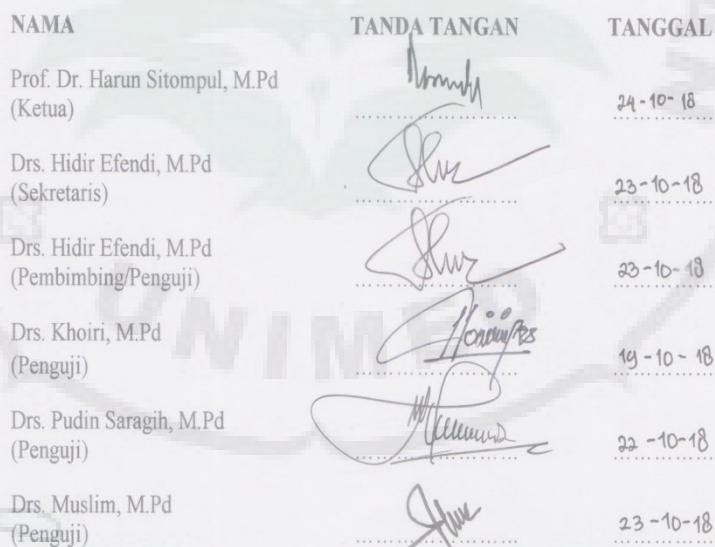 NAMA TANDA TANGAN TANGGAL
Prof. Dr. Harun Sitompul, M.Pd
(Ketua) 24-10-18
Drs. Hidir Efendi, M.Pd
(Sekretaris) 23-10-18
Drs. Hidir Efendi, M.Pd
(Pembimbing/Penguji) 23-10-18
Drs. Khoiri, M.Pd
(Penguji) 19-10-18
Drs. Pudin Saragih, M.Pd
(Penguji) 22-10-18
Drs. Muslim, M.Pd
(Penguji) 23-10-18
UNIMED